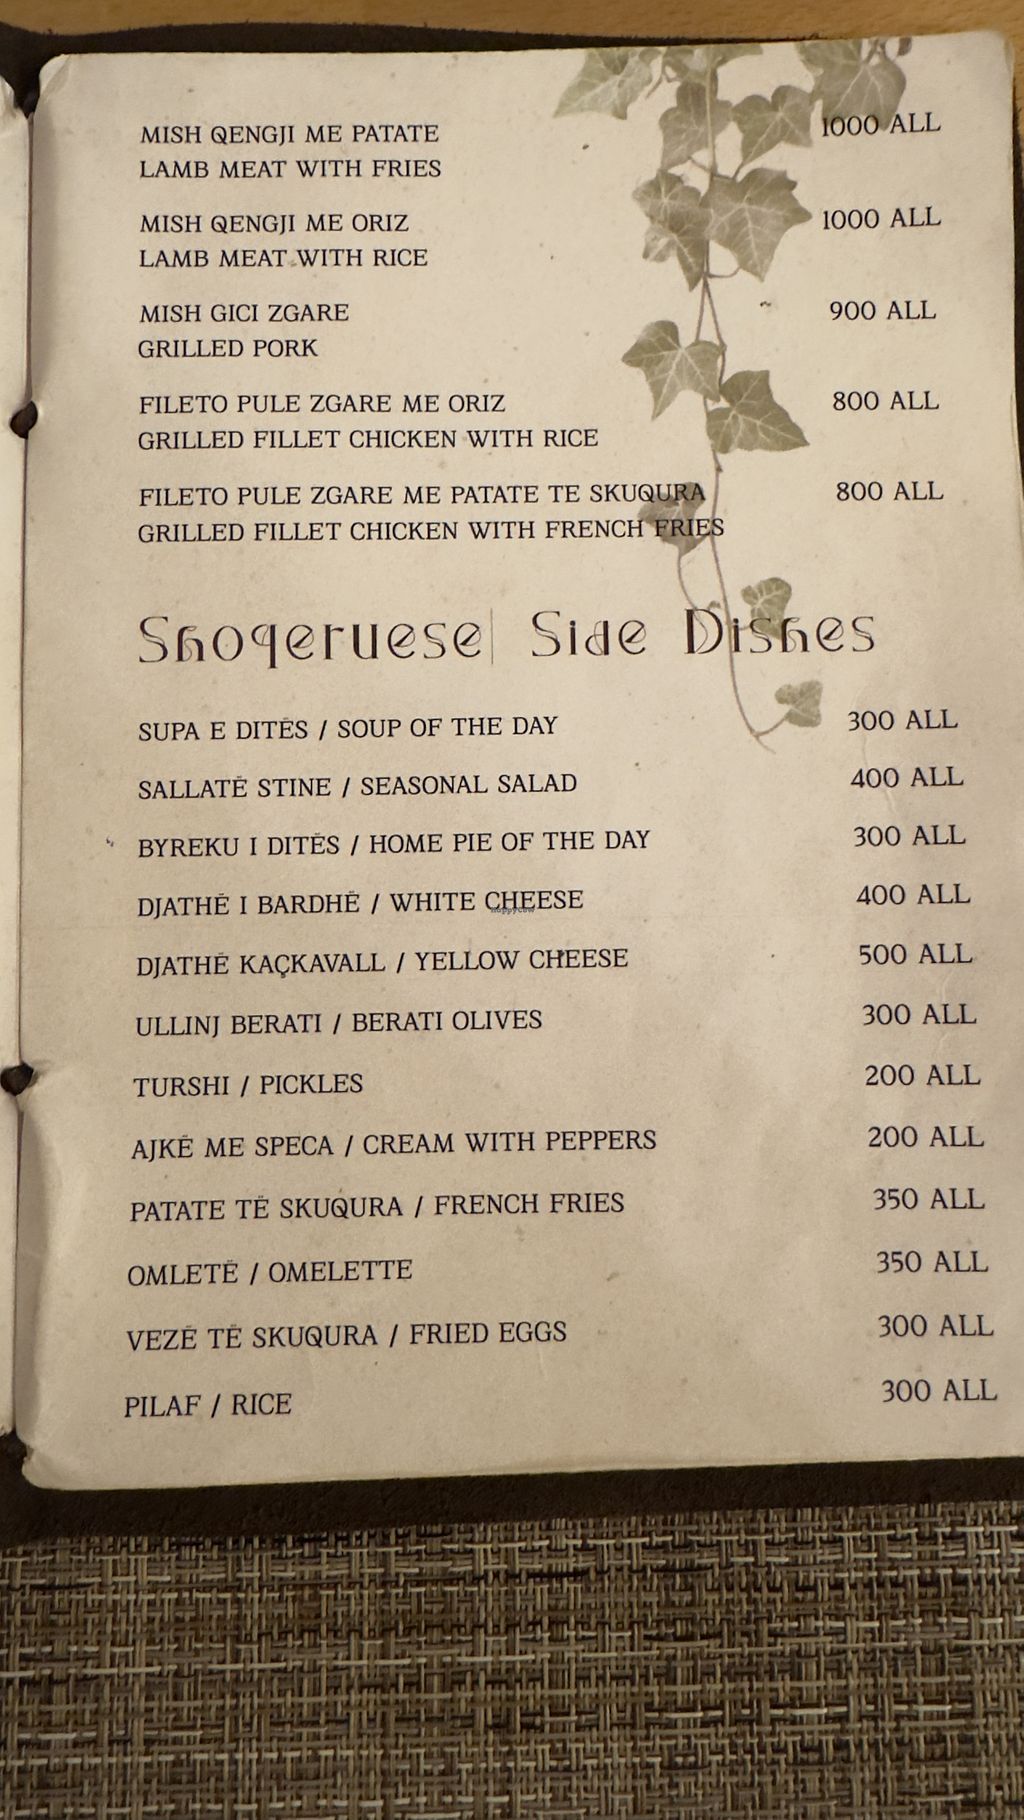 MISH QENGJI ME PATATE 1000 ALL
LAMB MEAT WITH FRIES
MISH QENGJI ME ORIZ 1000 ALL
LAMB MEAT WITH RICE
MISH GICI ZGARE 900 ALL
GRILLED PORK
FILETO PULE ZGARE ME ORIZ 800 ALL
GRILLED FILLET CHICKEN WITH RICE
FILETO PULE ZGARE ME PATATE TE SKUQURA 800 ALL
GRILLED FILLET CHICKEN WITH FRENCH FRIES
Shoqeruese| Side Dishes
SUPA E DITËS / SOUP OF THE DAY 300 ALL
SALLATË STINE / SEASONAL SALAD 400 ALL
BYREKU I DITËS / HOME PIE OF THE DAY 300 ALL
DJATHË I BARDHË / WHITE CHEESE 400 ALL
happycow
DJATHË KAÇKAVALL / YELLOW CHEESE 500 ALL
ULLINJ BERATI / BERATI OLIVES 300 ALL
TURSHI / PICKLES 200 ALL
AJKË ME SPECA / CREAM WITH PEPPERS 200 ALL
PATATE TË SKUQURA / FRENCH FRIES 350 ALL
OMLETË / OMELETTE 350 ALL
VEZË TË SKUQURA / FRIED EGGS 300 ALL
PILAF / RICE 300 ALL